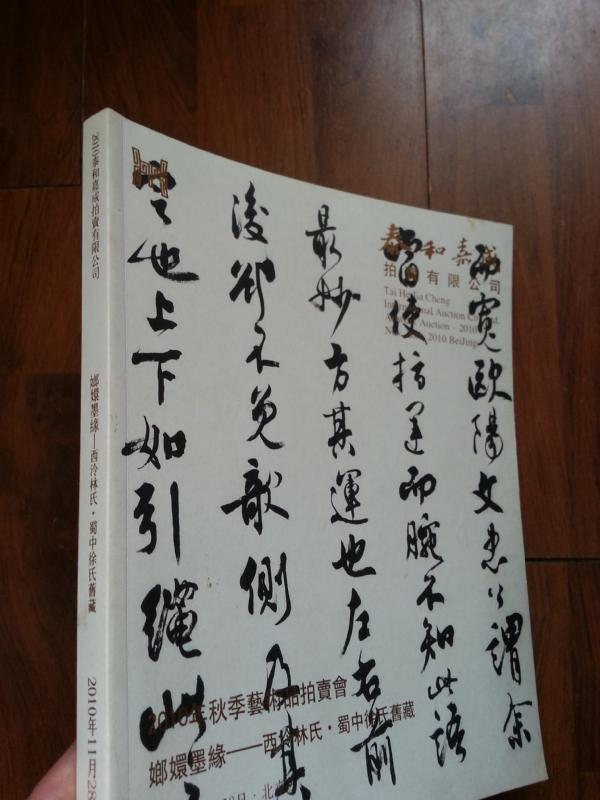 2010泰和嘉成拍賣有限公司
嫏嬛墨緣—西泠林氏·蜀中徐氏舊藏
2010年11月28
泰和嘉成
拍賣有限公司
Tai He Jia Cheng
International Auction Co., Ltd.
Auction - 2010
2010 BeiJing
而寬歐陽文忠公謂余
當使指運而腕不知此語
最妙方其運也左右前
後卻不免欹側及其
定也上下如引繩此
2010年秋季藝術品拍賣會
嫏嬛墨緣——西泠林氏·蜀中徐氏舊藏